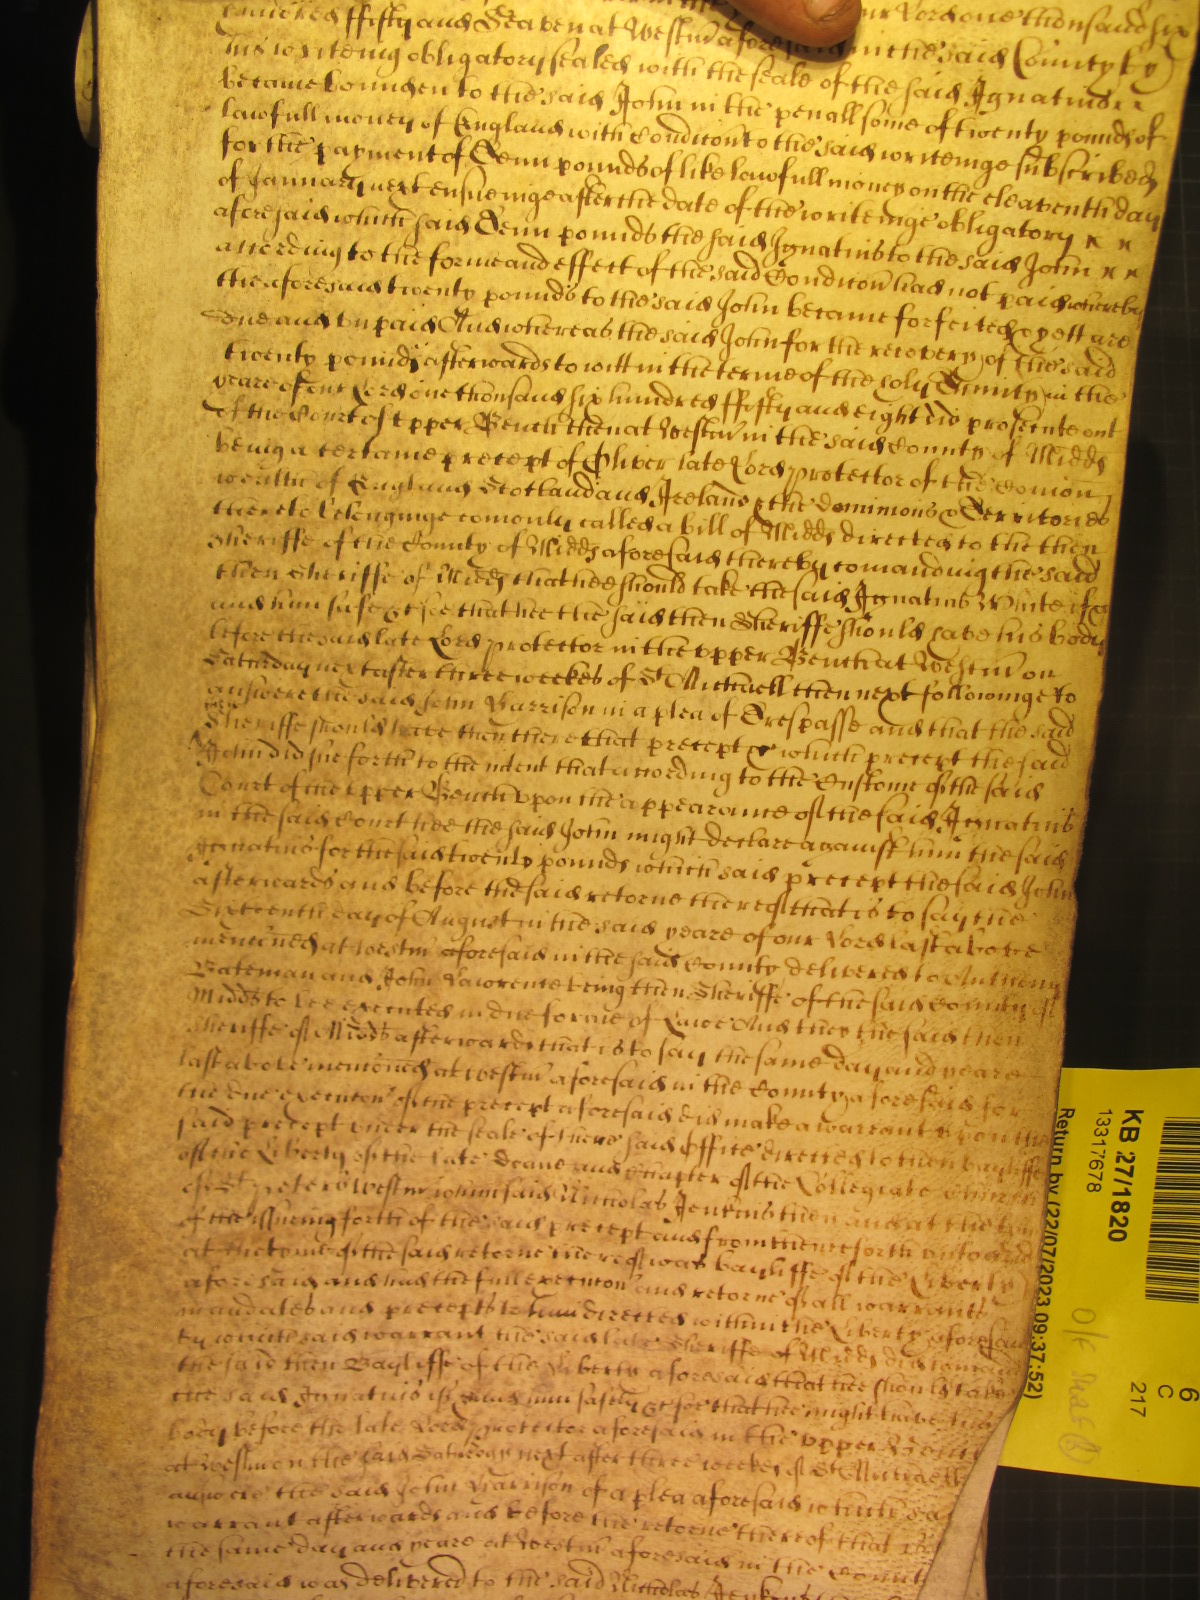 hundred ffifty and Seaven at Westm aforesaid in the said County by
his writeing obligatory sealed with the seale of the said Ignatius
became bounden to the said John in the penall some of twenty pounds of
lawfull money of England with Condicon to the said writeinge subscribed
for the payment of Tenn pounds of like lawfull money on the eleaventh day
of January next ensueinge after the date of the writeinge obligatory
aforesaid which said Tenn pounds the said Ignatius to the said John
according to the forme and effect of the said Condicon had not paid whereby
the aforesaid twenty pounds to the said John became forfeited & yett are
due and unpaid And whereas the said John for the recovery of the said
twenty pounds afterwards to witt in the terme of the holy Trinity in the
yeare of our Lord one thousand six hundred ffifty and eight did prosecute out
of the Court of upper Bench then at Westm in the said County of Midds
being a certaine precept of Oliver late Lord protector of the Comon
wealth of England Scotland and Ireland & the dominions & Territories
thereto belonginge comonly called a bill of Midds directed to the then
Sheriffe of the County of Midds aforesaid thereby comanding the said
then Sheriffe of Midds that hee should take the said Ignatius White if &c
and him safe &c soe that hee the said then Sheriffe should have his body
before the said late Lord protector in the upper Bench at Westm on
Saturday next after three weekes of St Michaell then next followinge to
answere the said John Harrison in a plea of Trespasse and that the said
Sheriffe should have then there that precept which precept the said
John did sue forth to the intent that according to the Custome of the said
Court of the upper Bench upon the appearance of the said Ignatius
in the said Court hee the said John might declare against him the said
Ignatius for the said twenty pounds which said precept the said John
afterwards and before the said retorne thereof that is to say the
Sixteenth day of August in the said yeare of our Lord last above
mencioned at Westm aforesaid in the said County delivered to Anthony
Bateman and John Lawrence being then Sheriffe of the said County of
Midds to bee executed in due forme of Lawe And they the said then
Sheriffe of Midds afterwards that is to say the same day and yeare
last above mencioned at Westm aforesaid in the County aforesaid for
the due execucon of the precept aforesaid did make a warrant upon the
said precept under the seale of there said Office directed to then bayliffe
of the Liberty of the late Deane and Chapter of the Collegiate Church
of St peters Westm which said Nicholas Jenkins then and at the tyme
of the issueing forth of the said precept and from thenceforth unto and
at the tyme of the said retorne thereof was bayliffe of the Liberty
aforesaid and had the full execucon and retorne of all warrants
mandates and precepts to him directed within the Liberty aforesaid
by which said warrant the said late Sheriffe of Midds did comand
the said then Bayliffe of the Liberty aforesaid that hee should take
the said Ignatius if &c and him safely &c soe that hee might have his
body before the late Lord protector aforesaid in the upper Bench
at Westm on the said Saturday next after three weekes of St Michaell
answere the said John Harrison of a plea aforesaid which said
warrant afterwards and before the retorne thereof that is
the same day and yeare at Westm aforesaid in the County
aforesaid was delivered to the said Nicholas Jenkins
KB 27/1820
13317678
Return by (22/07/2023 09:37:52)
6
C
217